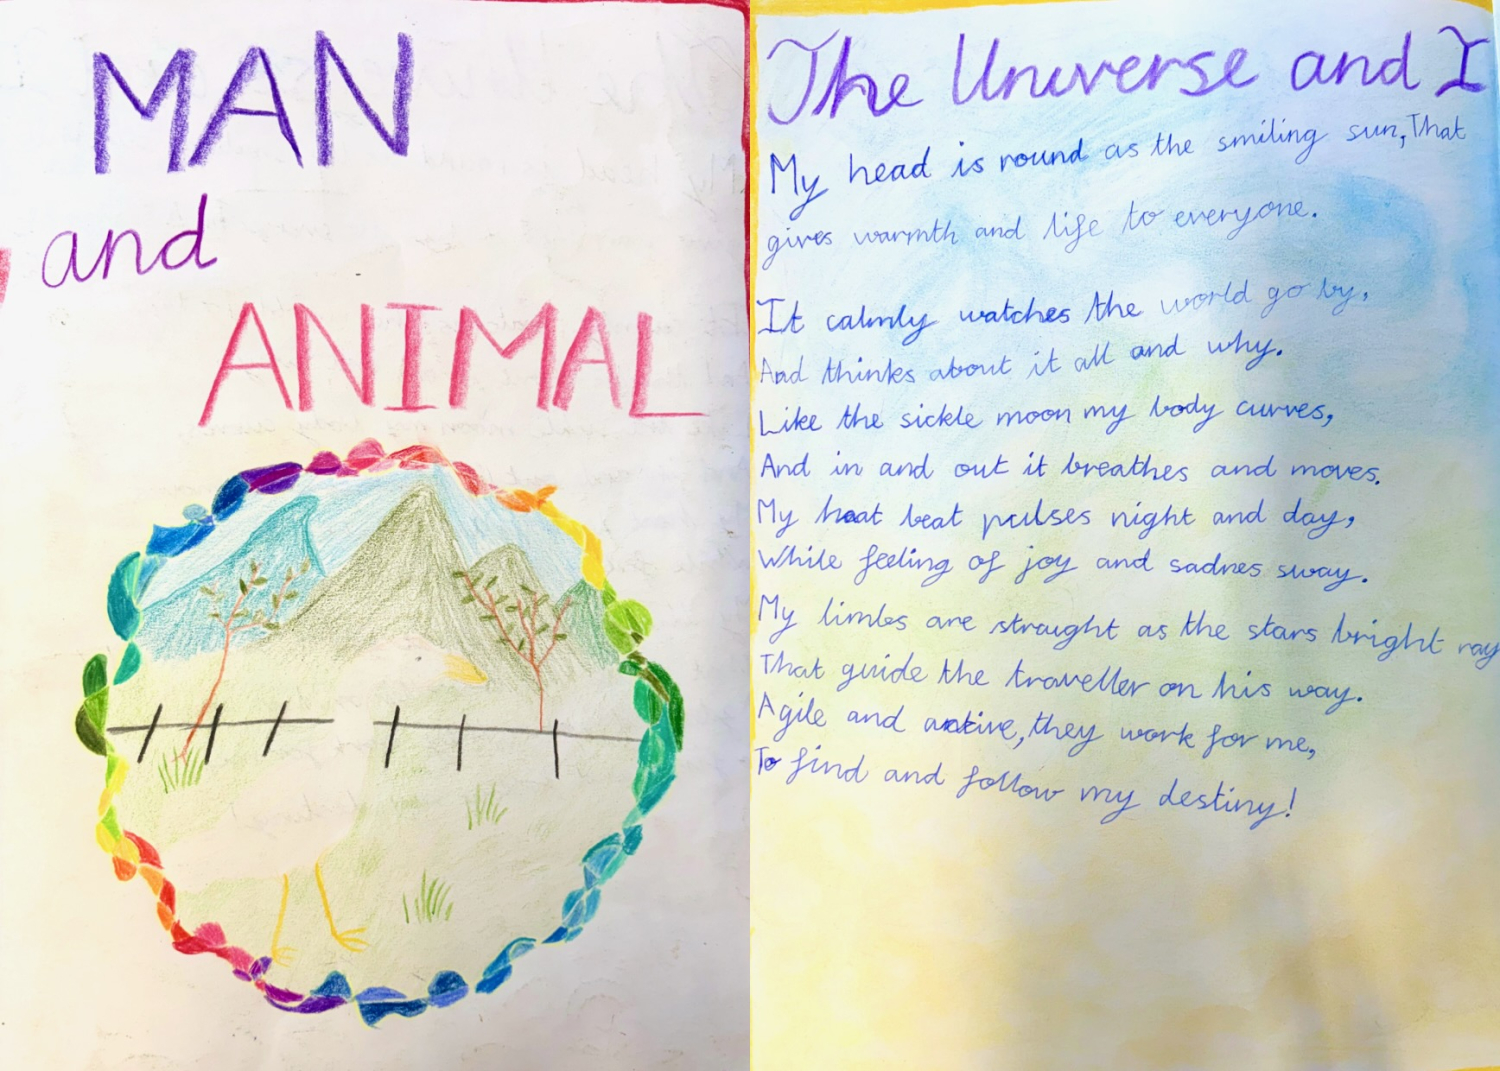 MAN
and
ANIMAL
The Universe and I
My head is round as the smiling sun, That
gives warmth and life to everyone.
It calmly watches the world go by,
And thinks about it all and why.
Like the sickle moon my body curves,
And in and out it breathes and moves.
My heat beat pulses night and day,
While feeling of joy and sadnes sway.
My limbs are straught as the stars bright ray
That guide the traveller on his way.
Agile and active, they work for me,
To find and follow my destiny!